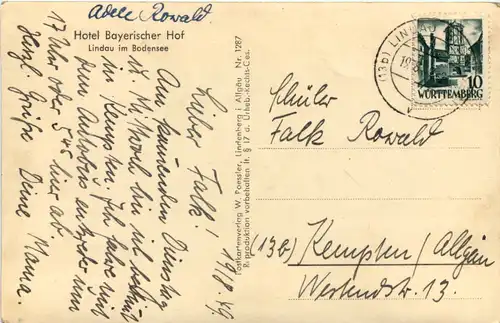 Adele Rowald
Hotel Bayerischer Hof
Lindau im Bodensee
19/8 49
Lieber Falk!
Am kommenden Dienstag
bin ich bestimmt
in Kempten. Ich fahre mit
dem Autobus entweder um
17 Uhr oder 5 45 hier ab.
Herzl. Grüße Deine Mama.
Postkartenverlag W. Ponsler, Lindenberg i. Allgäu Nr. 1287
Reproduktion vorbehalten lt. § 17 d. Urheb.-Rechts-Ges.
(13b) LINDAU
10
WÜRTTEMBERG
Schüler
Falk Rowald
(13b) Kempten/Allgäu
Westendstr. 13.